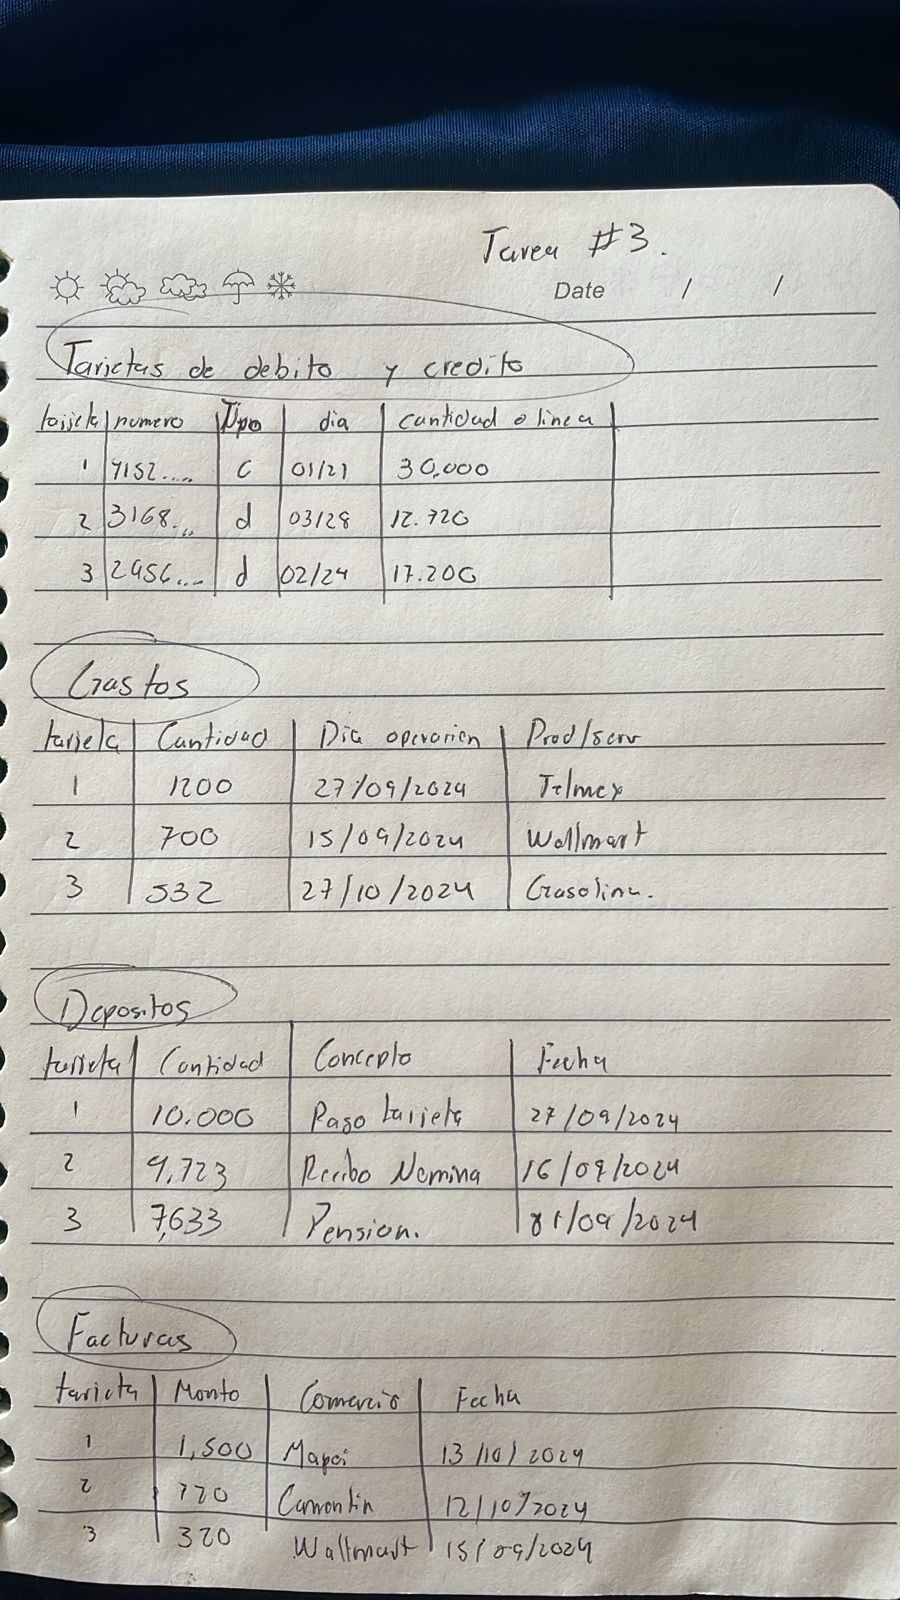 Tarea #3.
Date / /
Tarjetas de debito y credito
tarjeta numero Tipo dia cantidad o linea
1 4152.... C 01/21 30,000
2 3168... d 03/28 12.720
3 2956... d 02/24 17.200
Gastos
tarjeta Cantidad Dia operacion Prod/serv
1 1200 27/09/2024 Telmex
2 700 15/09/2024 Wallmart
3 532 27/10/2024 Gasolina.
Depositos
tarjeta Cantidad Concepto Fecha
1 10.000 Pago tarjeta 27/09/2024
2 9,723 Recibo Nomina 16/09/2024
3 7,633 Pension. 01/09/2024
Facturas
tarjeta Monto Comercio Fecha
1 1,500 13/10/2024
2 720 12/10/2024
3 320 Wallmart 15/09/2024